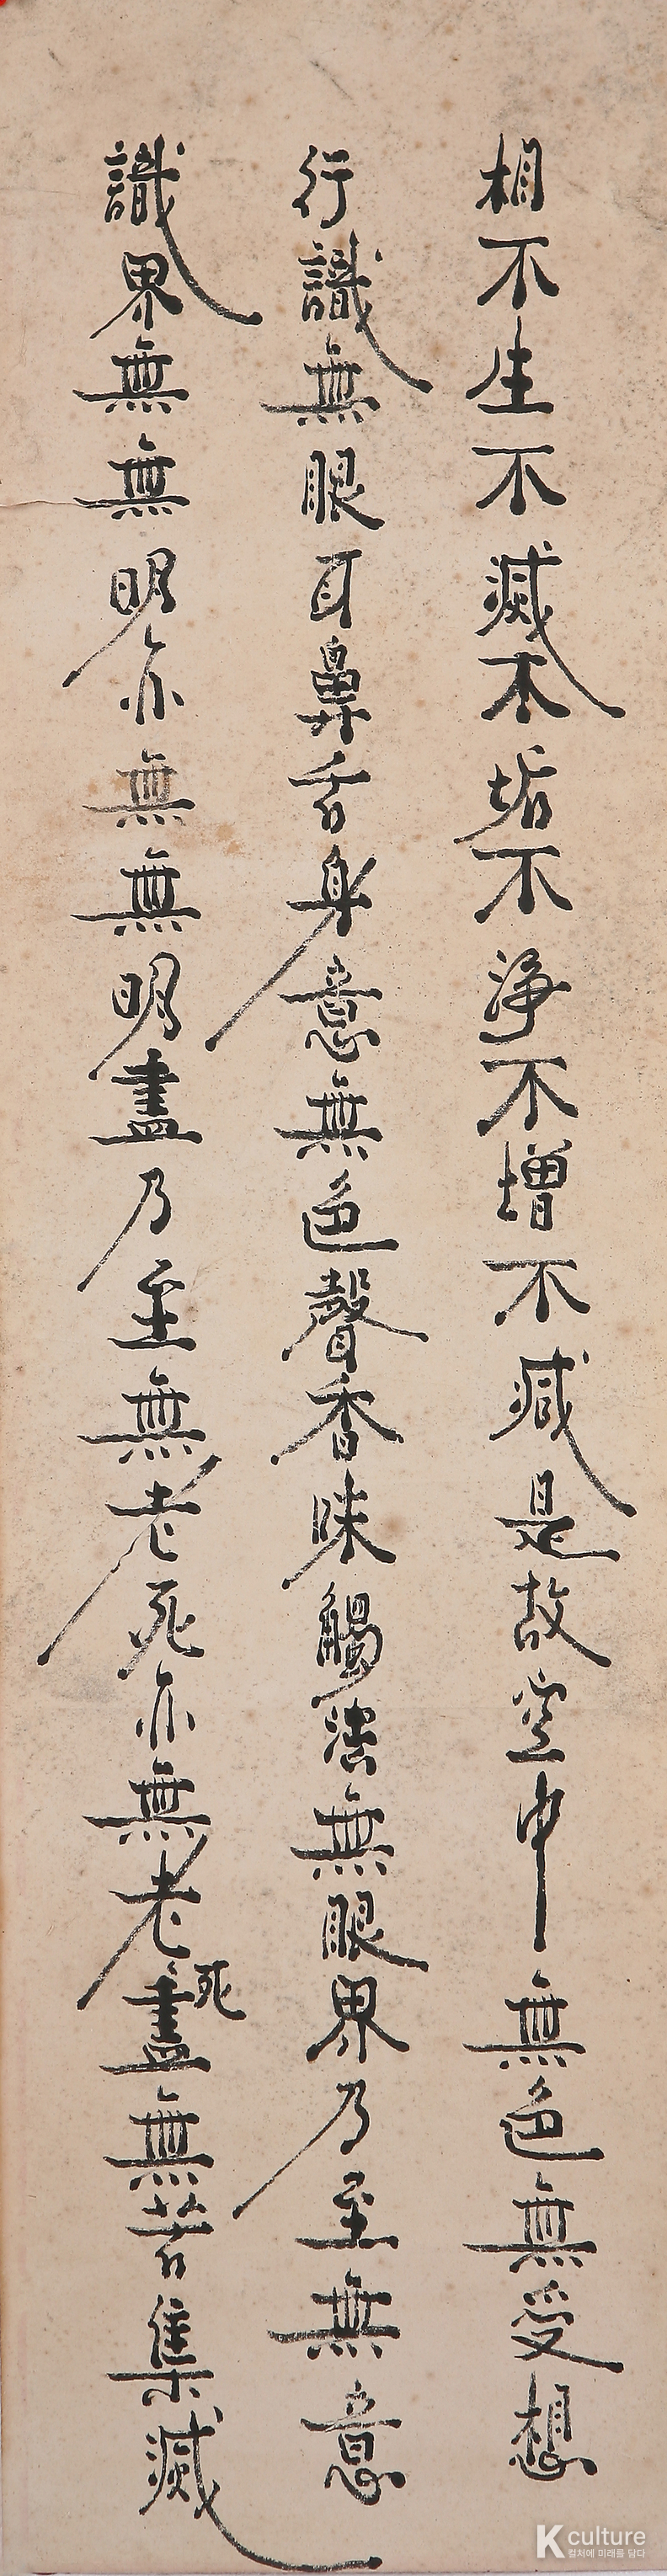 相不生不滅不垢不淨不增不減是故空中無色無受想
行識無眼耳鼻舌身意無色聲香味觸法無眼界乃至無意
識界無無明亦無無明盡乃至無老死亦無老死盡無苦集滅
K culture
컬처에 미래를 담다